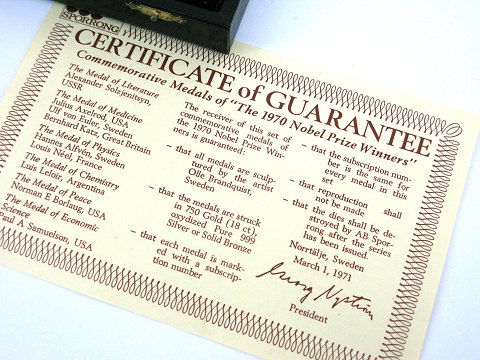 SPORRONG
CERTIFICATE of GUARANTEE
Commemorative Medals of "The 1970 Nobel Prize Winners"
The Medal of Literature
Alexander Solzjenitsyn,
USSR
The Medal of Medicine
Julius Axelrod, USA
Ulf von Euler, Sweden
Bernhard Katz, Great Britain
The Medal of Physics
Hannes Alfvén, Sweden
Louis Néel, France
The Medal of Chemistry
Luis Leloir, Argentina
The Medal of Peace
Norman E Borlaug, USA
The Medal of Economic
Science
Paul A. Samuelson, USA
The receiver of this set of
commemorative medals of
the 1970 Nobel Prize Win-
ners is guaranteed:
- that all medals are sculp-
tured by the artist
Olle Brandquist,
Sweden
- that the medals are struck
in 750 Gold (18 ct),
oxydized Pure 999
Silver or Solid Bronze
- that each medal is mark-
ed with a subscrip-
tion number
- that the subscription num-
ber is the same for
every medal in this
set
- that reproduction shall
not be made
- that the dies shall be de-
stroyed by AB Spor-
rong after the series
has been issued.
Norrtälje, Sweden
March 1, 1971
President